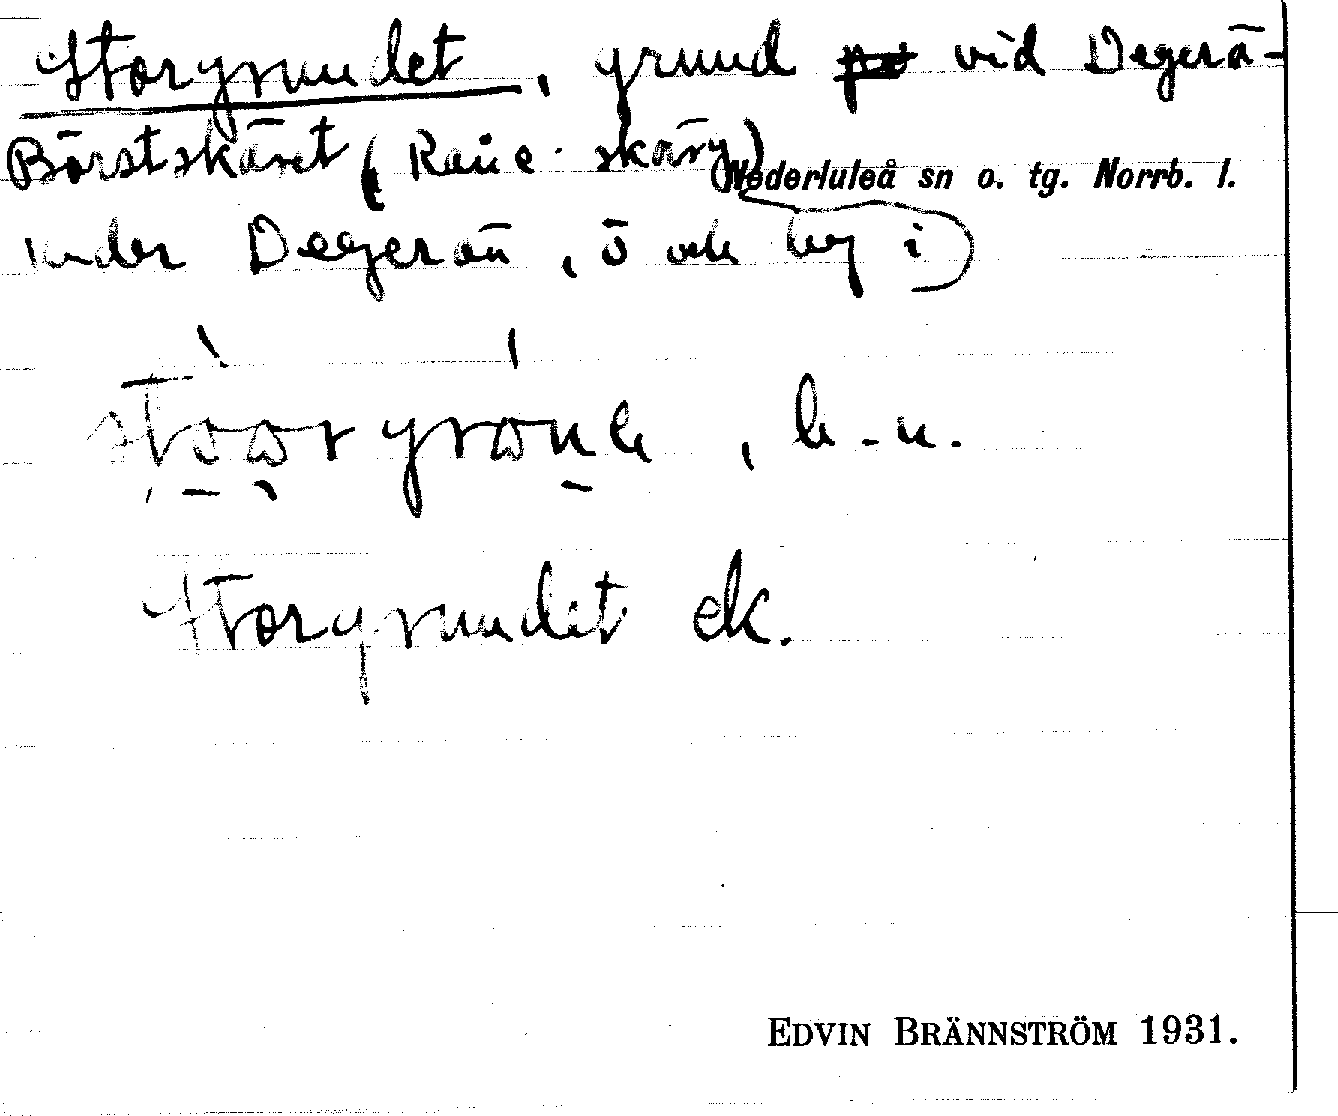 Storgrundet, grund vid Degerä-
Börstskäret (Råne skärg)
Nederluleå sn o. tg. Norrb. l.
under Degerön, ö och by i
stoorgrönn, b.n.
Storgrundet ek.
EDVIN BRÄNNSTRÖM 1931.